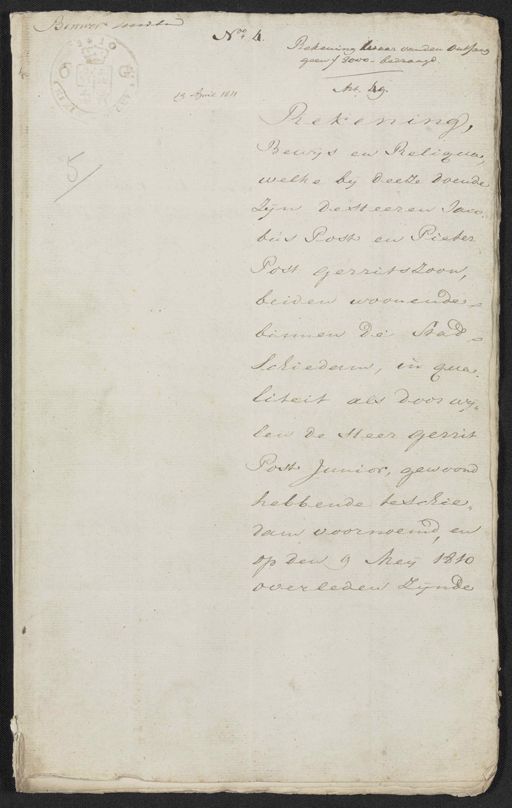 Noo 4.
Rekening waar van den Ontfang
geen f 3000- bedraagd.
Art. 49.
12 April 1811
5
Rekening,
Bewijs en Reliqua,
welke bij deeze doende
zijn de Heeren Jaco-
bus Post en Pieter
Post gerritszoon,
beiden woonende
binnen de Stad
Schiedam, in qua-
liteit als door wij-
len de Heer gerrit
Post Junior, gewoond
hebbende te schie-
dam voornoemd, en
op den 9 Meij 1810
overleden zijnde